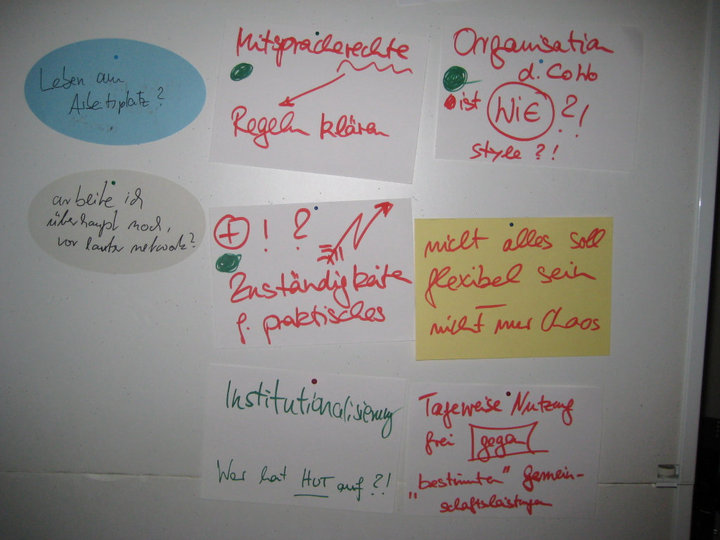 Leben am
Arbeitsplatz?
arbeite ich
überhaupt noch,
vor lauter network?
Mitspracherechte
Regeln klären
Organisation
d. CoWo
ist WIE ?!
style?!
+ ! ?
Zuständigkeiten
f. praktisches
nicht alles soll
flexibel sein
nicht nur Chaos
Institutionalisierung
Wer hat HUT auf?!
Tageweise Nutzung
frei gegen
"bestimmten" Gemein-
schaftsleistungen